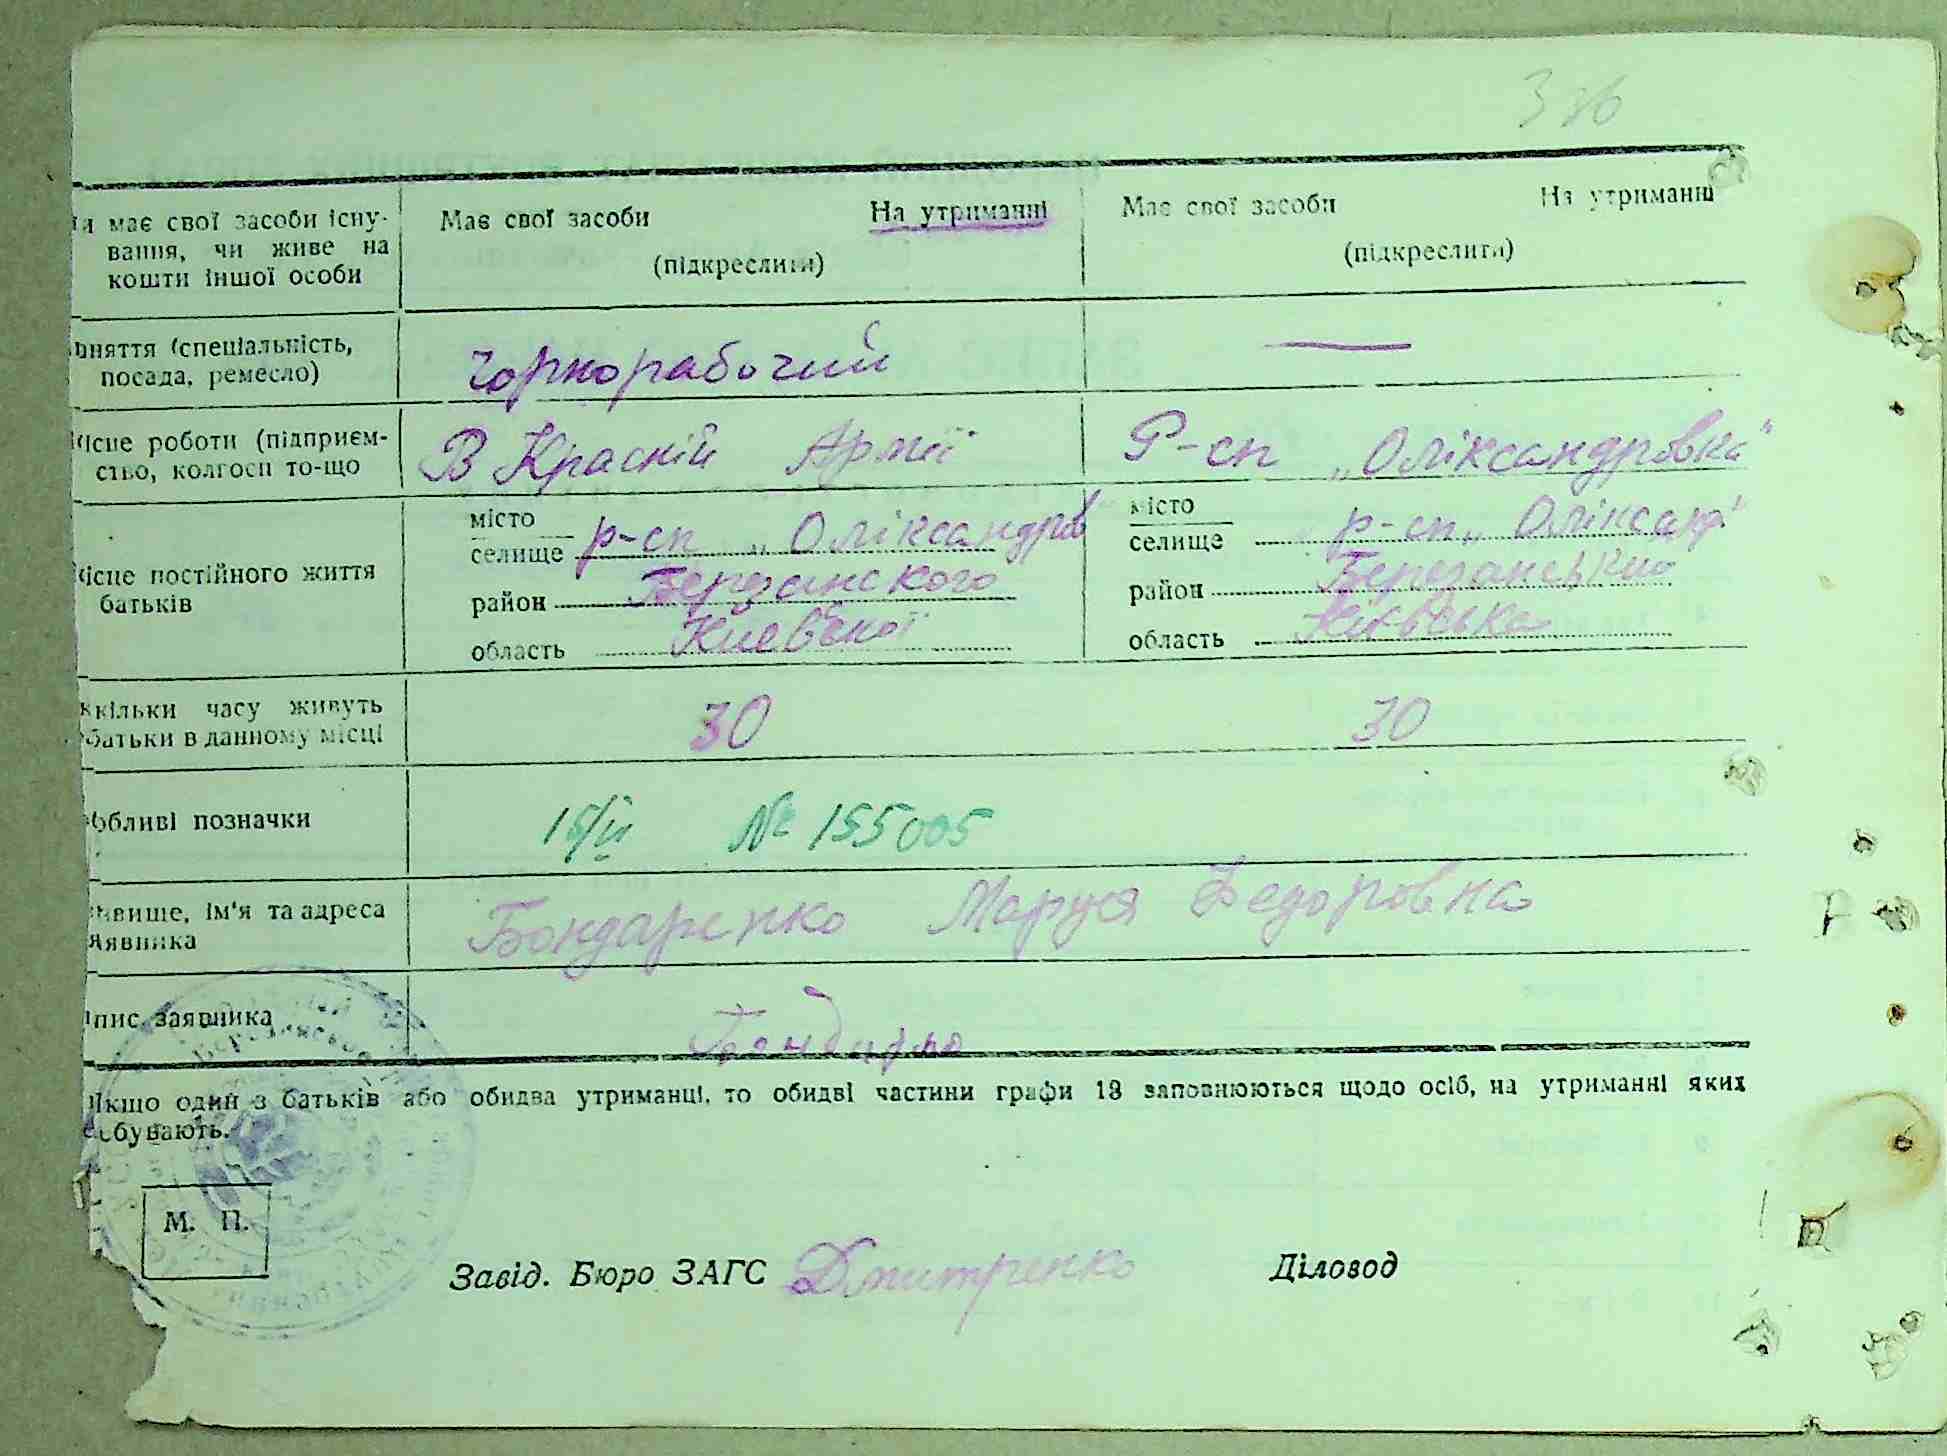 3 зв
и має свої засоби існу-
вання, чи живе на
кошти іншої особи
Має свої засоби На утриманні
(підкреслити)
Має свої засоби На утриманні
(підкреслити)
няття (спеціальність,
посада, ремесло)
Чорнорабочий
—
ісце роботи (підприєм-
ство, колгосп то-що
В Красній Армії
Р-сп „Оліксандровка"
ісце постійного життя
батьків
місто
селище р-сп „Оліксандров
район Березанского
область Киевскої
місто
селище р-сп „Оліксандр"
район Березанський
область Київська
кільки часу живуть
батьки в данному місці
30
30
обливі позначки
15/II № 155005
звище, ім'я та адреса
аявника
Бондаренко Маруся Федоровна
пис заявника
Якщо один з батьків або обидва утриманці, то обидві частини графи 13 заповнюються щодо осіб, на утриманні яких
бувають.
М. П.
Завід. Бюро ЗАГС Дмитренко Діловод